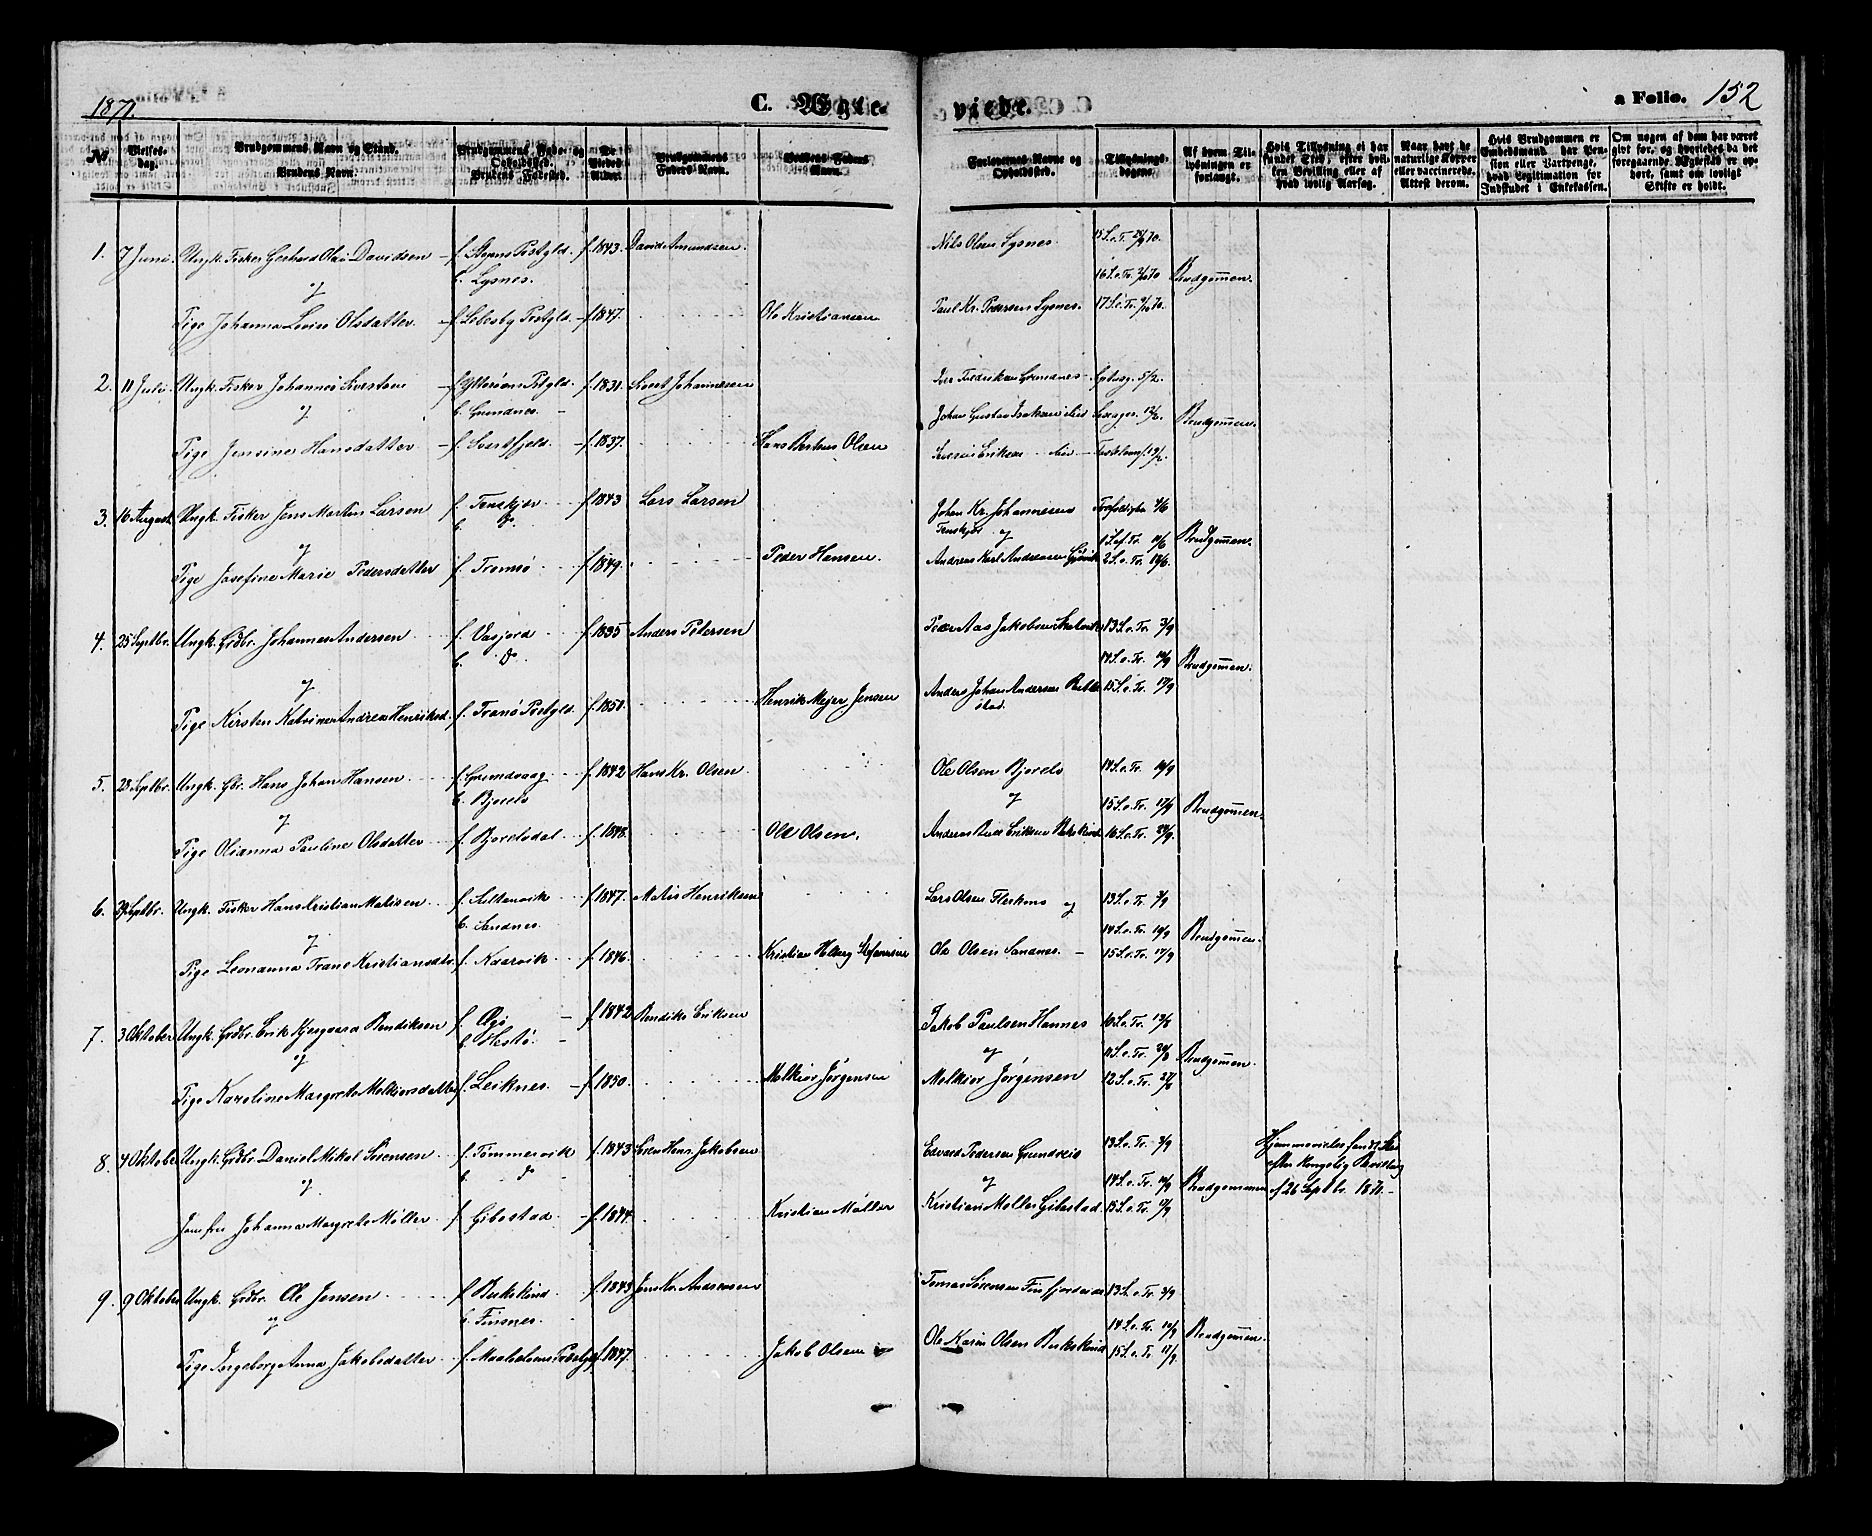 1871.
C. Ægte-
viede.
a Folio. 152
No
Vielses-dag.
Brudgommens Navn og Stand.
Brudens Navn.
Brudgommens Føde- og Opholdssted.
Brudens Fødested.
De Viedes Alder.
Brudgommens Faders Navn.
Brudens Faders Navn.
Forlovernes Navne og Opholdssted.
Tillysnings-dagene.
Af hvem Tillysningen er forlangt.
Hvis Tillysning ei har fundet Sted, efter hvilken Bevilling eller af hvad lovlig Aarsag.
Naar havt de naturlige Kopper eller vaccinerede. Attest derom.
Hvis Brudgommen er Embedsmand, har Pension eller Vartpenge, hvad Legitimation for Indskudet i Enkekassen.
Om nogen af dem har været gift før, og hvorledes da det foregaaende Ægteskab er ophørt, samt om lovligt Skifte er holdt.
1. 7 Juni. Ungk. Fisker Gerhard Olai Davidsen f. Prstgld. f. 1843. David Amundsen. Nils Olsen Lysnes. 15 S. e. Tr.
b. Lysnes. 16 S. e. Tr. 2/10 70 Brudgommen.
og
Pige Johanna Lovise Olsdatter f. Lebesby Prstgld. f. 1847. Ole Kristiansen Paul Kr. Pedersen Lysnes. 17 S. e. Tr. 9/10 70.
2. 11 Juli. Ungk. Fisker Johannes Sivertsen f. Ytterøens Prstgld. f. 1831. Sivert Johannesen Iver Fredriksen Grundnes 5/2.
og b. Grundnes. Johan Gustav Isaksen 12/2. Brudgommen.
Pige Jensine Hansdatter f. Svertfjeld. f. 1837. Hans Olsen Eriksen 19/2.
3. 16 August. Ungk. Fisker Jens Martin Larsen f. Tenskjer f. 1843 Lars Larsen Johan Kr. Johannesen 4/6
b. do. Tenskjer og 1 S. e. Tr. 11/6 Brudgommen.
og
Pige Josefine Marie Pedersdatter f. Tromsø f. 1849. Peder Hansen. Andreas Karl Andersen Gjøvik 2 S. e. Tr. 18/6.
4. 25 Septbr. Ungk. Grdbr. Johannes Andersen f. Vasjord f. 1835 Anders Petersen Peder Aas Jakobsen 13 S. e. Tr. 3/9
b. do. 14 S. e. Tr. 10/9 Brudgommen.
og
Pige Kirsten Katrine Andrea Henriksd. f. Tranø Prstgld. f. 1850. Henrik Mejer Jensen Anders Johan Andersen 15 S. e. Tr. 17/9
stad.
5. 28 Septbr. Ungk. Gbr. Hans Johan Hansen f. Grundvaag f. 1842 Hans Kr. Olsen Ole Olsen Bjorelv 14 S. e. Tr. 10/9
b. Bjorelv og 15 S. e. Tr. 17/9 Brudgommen.
og
Pige Olianna Pauline Olsdatter f. Bjorelvdal f. 1848. Ole Olsen. Anders Eriksen 16 S. e. Tr. 24/9.
6. 29 Septbr. Ungk. Fisker Hans Kristian Matisen f. Sultenvik f. 1847. Matis Henriksen Lars Olsen og 13 S. e. Tr. 3/9
b. Sandnes. 14 S. e. Tr. 10/9 Brudgommen.
og
Pige Leonanna Trane Kristiansdtr. f. Kaarvik f. 1846. Kristian Holberg Stefanusen Ole Olsen Sandnes. 15 S. e. Tr. 17/9
7. 3 Oktober Ungk. Grdbr. Erik Kjergaard Bendiksen f. f. 1842 Bendiks Eriksen Jakob Paulsen Hannes 10 S. e. Tr. 13/8
b. Hestø. og 11 S. e. Tr. 20/8 Brudgommen.
og
Pige Karoline Margrete Melkiorsdatter f. Leiknes. f. 1850. Melkior Jørgensen Melkior Jørgensen 12 S. e. Tr. 27/8
8. 4 Oktober Ungk. Grdbr. Daniel Mikal Sørensen f. Tømmervik f. 1843 Søren Hans Jakobsen Edvard Pedersen 13 S. e. Tr. 3/9 Hjemmevielse fandt Sted
b. do og 14 S. e. Tr. 10/9 Brudgommen efter Kongelig Bevilling
og af 26 Septbr. 1871.
Jomfru Johanna Margrete Møller f. Gibostad f. 1844. Kristian Møller Kristian Møller Gibostad 15 S. e. Tr. 17/9
9. 9 Oktober Ungk. Grdbr. Ole Jensen f. Bukskind f. 1843 Jens Kr. Andreasen Tomas Sørensen Finfjordeid 13 S. e. Tr. 3/9
b. Finsnes. 14 S. e. Tr. 10/9 Brudgommen.
og
Pige Ingeborg Anna Jakobsdatter f. Maalselvens Prstgld. f. 1847. Jakob Olsen Ole Karin Olsen Bukskind 15 S. e. Tr. 17/9